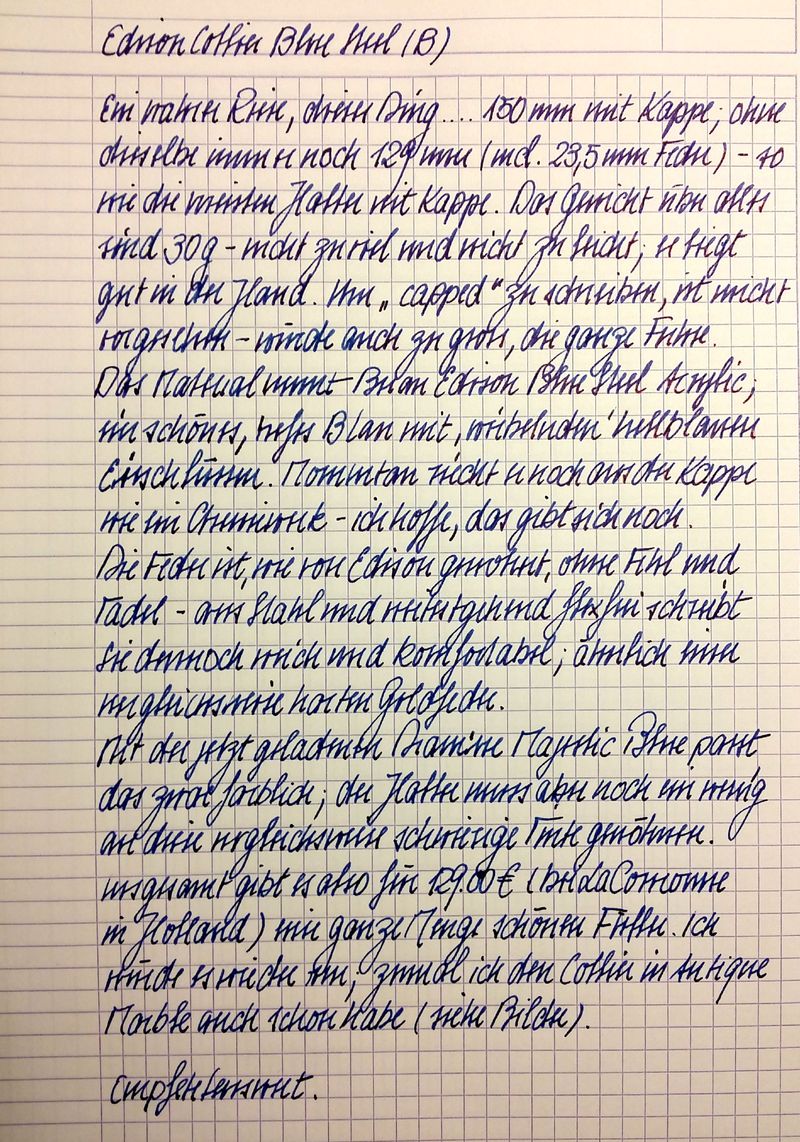 Edison Collier Blue Steel (B)
Ein wahrer Riese, dieses Ding.... 150 mm mit Kappe; ohne
dieselbe immer noch 129 mm (incl. 23,5 mm Feder) - so
wie die meisten Halter mit Kappe. Das Gewicht über alles
sind 30g - nicht zu viel und nicht zu leicht; er liegt
gut in der Hand. Ihn „capped" zu schreiben, ist nicht
vorgesehen - würde auch zu gross, die ganze Fuhre.
Das Material nennt Brian Edison Blue Steel Acrylic;
ein schönes, tiefes Blau mit ,wirbelnden' hellblauen
Einschlüssen. Momentan riecht er noch aus der Kappe
wie ein Chemiewerk - ich hoffe, das gibt sich noch.
Die Feder ist, wie von Edison gewohnt, ohne Fehl und
Tadel - aus Stahl und weitestgehend flexfrei schreibt
sie dennoch weich und komfortabel; ähnlich einer
vergleichsweise harten Goldfeder.
Mit der jetzt geladenen Diamine Majestic Blue passt
das zwar farblich; der Halter muss aber noch ein wenig
an diese vergleichsweise schwierige Tinte gewöhnen.
Insgesamt gibt es also für 129.00€ (bei LaCouronne
in Holland) eine ganze Menge schönen Füller. Ich
würde es wieder tun; zumal ich den Collier in Antique
Marble auch schon habe (siehe Bilder).
Empfehlenswert.